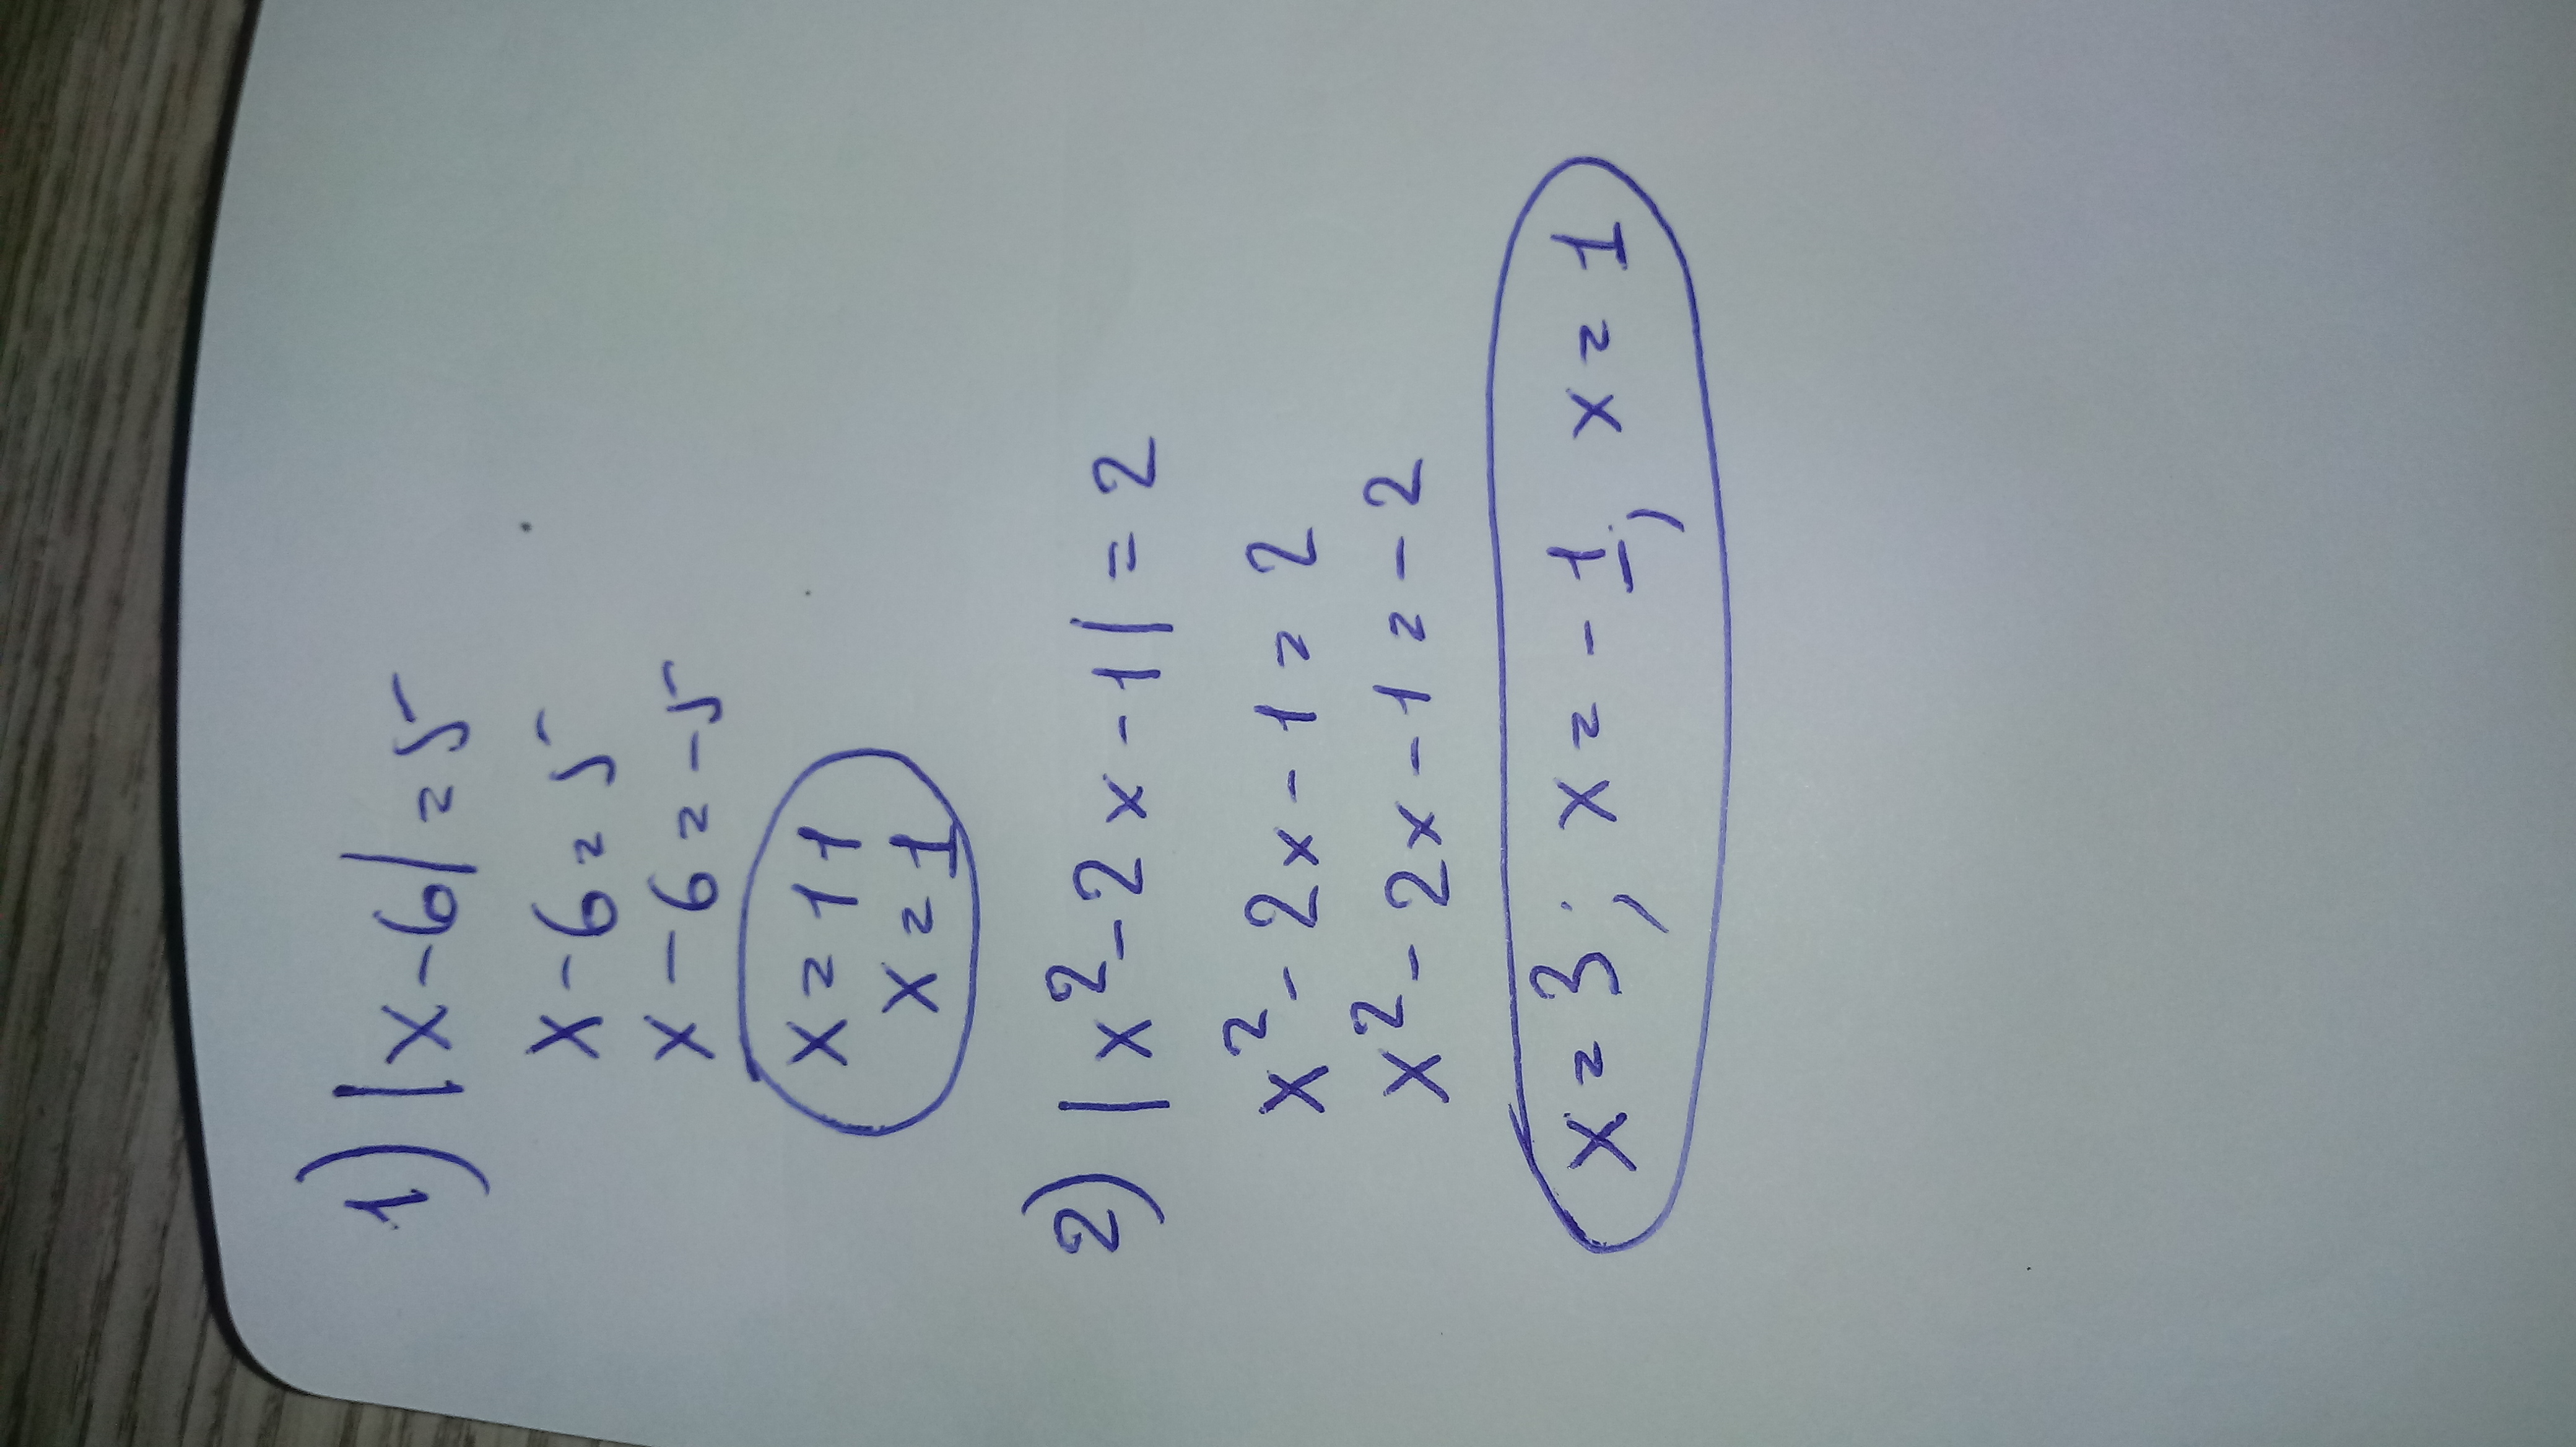 1) |x-6|=5
x-6=5
x-6=-5
x=11
x=1
2) |x²-2x-1|=2
x²-2x-1=2
x²-2x-1=-2
x=3; x=-1, x=1